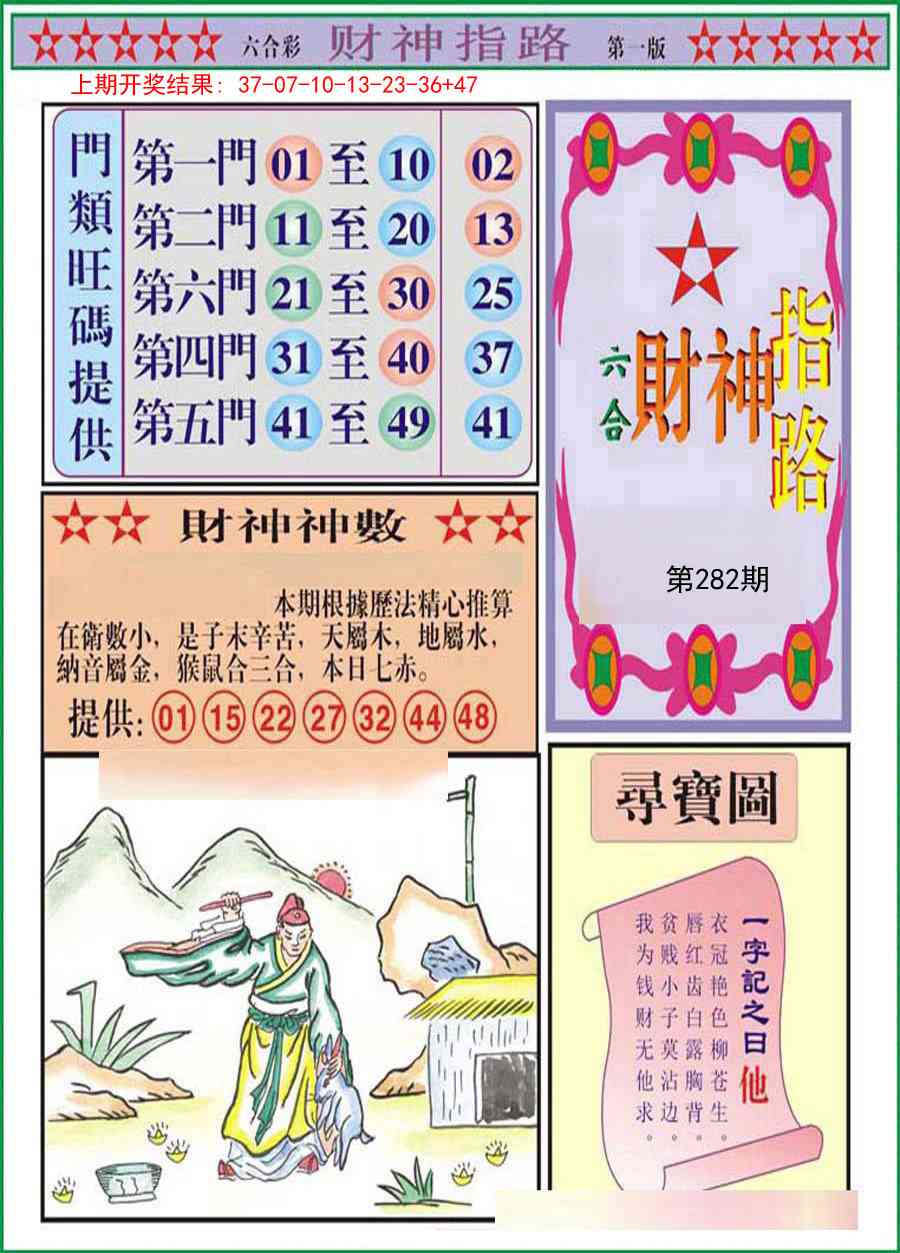 六合彩 财神指路 第一版
上期开奖结果: 37-07-10-13-23-36+47
門類旺碼提供
第一門 01 至 10 02
第二門 11 至 20 13
第六門 21 至 30 25
第四門 31 至 40 37
第五門 41 至 49 41
六合
財神
指路
第282期
財神神數
本期根據歷法精心推算
在衛數小，是子末辛苦，天屬木，地屬水，
納音屬金，猴鼠合三合，本日七赤。
提供: 01 15 22 27 32 44 48
尋寶圖
一字記之日 他
衣冠艳色柳苍生。
唇红齿白露胸背。
贫贱小子莫沾边。
我为钱财无他求。